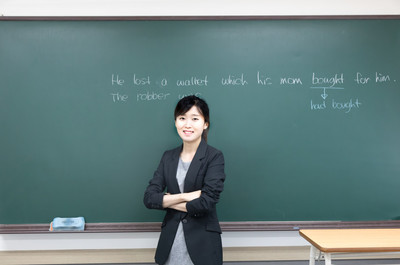 He lost a wallet which his mom bought for him.
The robber
had bought